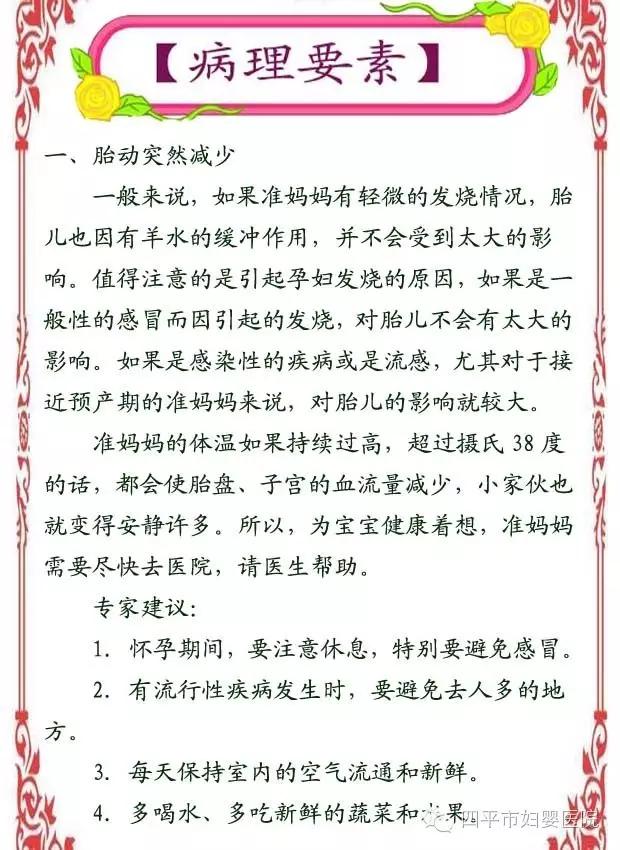 【病理要素】
一、胎动突然减少
一般来说，如果准妈妈有轻微的发烧情况，胎
儿也因有羊水的缓冲作用，并不会受到太大的影
响。值得注意的是引起孕妇发烧的原因，如果是一
般性的感冒而因引起的发烧，对胎儿不会有太大的
影响。如果是感染性的疾病或是流感，尤其对于接
近预产期的准妈妈来说，对胎儿的影响就较大。
准妈妈的体温如果持续过高，超过摄氏 38 度
的话，都会使胎盘、子宫的血流量减少，小家伙也
就变得安静许多。所以，为宝宝健康着想，准妈妈
需要尽快去医院，请医生帮助。
专家建议：
1．怀孕期间，要注意休息，特别要避免感冒。
2．有流行性疾病发生时，要避免去人多的地
方。
3．每天保持室内的空气流通和新鲜。
4．多喝水、多吃新鲜的蔬菜和水果。
四平市妇婴医院